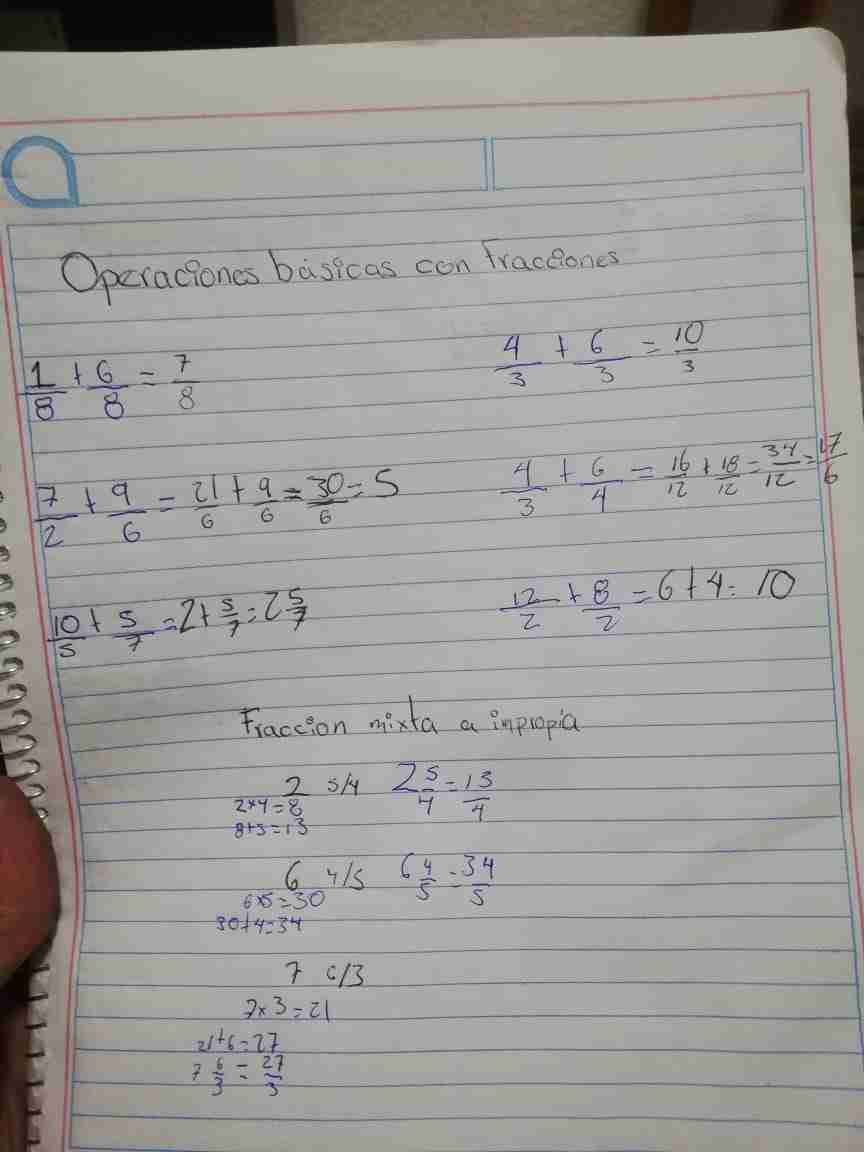 Operaciones básicas con fracciones
1/8 + 6/8 = 7/8
4/3 + 6/3 = 10/3
7/2 + 9/6 = 21/6 + 9/6 = 30/6 = 5
4/3 + 6/4 = 16/12 + 18/12 = 34/12 = 17/6
10/5 + 5/7 = 2 + 5/7 = 2 5/7
12/2 + 8/2 = 6 + 4 = 10
Fraccion mixta a impropia
2 5/4 2 5/4 = 13/4
2x4=8
8+5=13
6 4/5 6 4/5 = 34/5
6x5=30
30+4=34
7 6/3
7x3=21
21+6=27
7 6/3 = 27/3